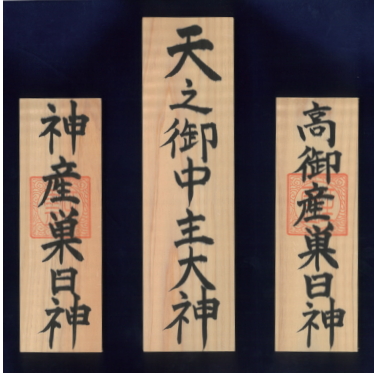 高御産巣日神
天之御中主大神
神産巣日神